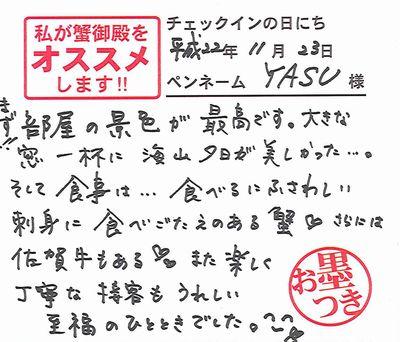 私が蟹御殿を
オススメ
します!!
チェックインの日にち
平成22年 11月 23日
ペンネーム YASU 様
まず!! 部屋の景色が 最高です。大きな
窓一杯に 海山夕日が 美しかった…。
そして 食事は… 食べるにふさわしい
刺身に 食べごたえのある 蟹 さらには
佐賀牛もある また 楽しく
丁寧な 接客も うれしい
至福のひとときでした。
お墨つき